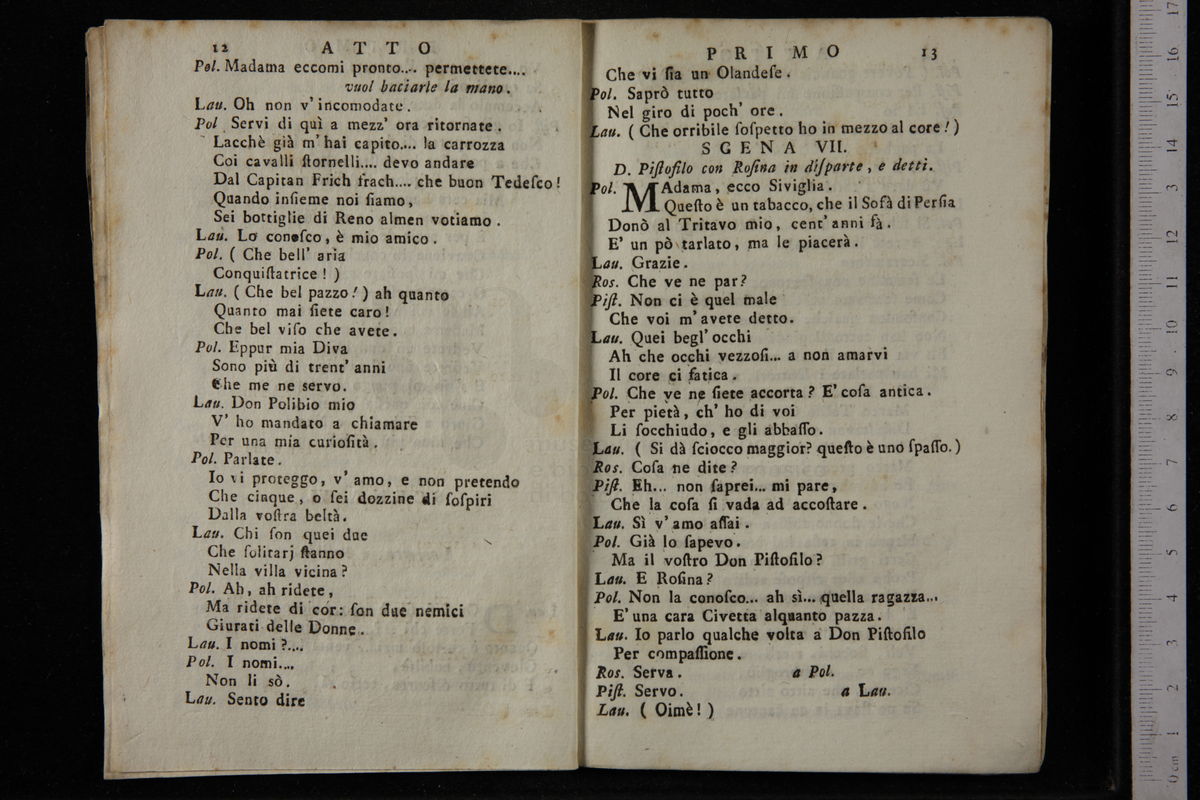 12 ATTO
Pol. Madama eccomi pronto.... permettete....
vuol baciarle la mano.
Lau. Oh non v' incomodate.
Pol. Servi di quì a mezz' ora ritornate.
Lacchè già m' hai capito.... la carrozza
Coi cavalli ſtornelli.... devo andare
Dal Capitan Frich frach.... che buon Tedeſco!
Quando inſieme noi ſiamo,
Sei bottiglie di Reno almen votiamo.
Lau. Lo conoſco, è mio amico.
Pol. ( Che bell' aria
Conquiſtatrice! )
Lau. ( Che bel pazzo! ) ah quanto
Quanto mai ſiete caro!
Che bel viſo che avete.
Pol. Eppur mia Diva
Sono più di trent' anni
Che me ne servo.
Lau. Don Polibio mio
V' ho mandato a chiamare
Per una mia curioſità.
Pol. Parlate.
Io vi proteggo, v' amo, e non pretendo
Che cinque, o ſei dozzine di ſoſpiri
Dalla voſtra beltà.
Lau. Chi ſon quei due
Che ſolitarj ſtanno
Nella villa vicina?
Pol. Ah, ah ridete,
Ma ridete di cor: ſon due nemici
Giurati delle Donne.
Lau. I nomi?....
Pol. I nomi....
Non li sò.
Lau. Sento dire
PRIMO 13
Che vi ſia un Olandeſe.
Pol. Saprò tutto
Nel giro di poch' ore.
Lau. ( Che orribile ſoſpetto ho in mezzo al core! )
SCENA VII.
D. Piſtofilo con Roſina in diſparte, e detti.
Pol. MAdama, ecco Siviglia.
Queſto è un tabacco, che il Sofà di Perſia
Donò al Tritavo mio, cent' anni fà.
E' un pò tarlato, ma le piacerà.
Lau. Grazie.
Ros. Che ve ne par?
Piſt. Non ci è quel male
Che voi m' avete detto.
Lau. Quei begl' occhi
Ah che occhi vezzoſi... a non amarvi
Il core ci fatica.
Pol. Che ve ne ſiete accorta? E' coſa antica.
Per pietà, ch' ho di voi
Li ſocchiudo, e gli abbaſſo.
Lau. ( Si dà ſciocco maggior? queſto è uno ſpaſſo. )
Ros. Coſa ne dite?
Piſt. Eh... non ſaprei... mi pare,
Che la coſa ſi vada ad accoſtare.
Lau. Sì v' amo aſſai.
Pol. Già lo ſapevo.
Ma il voſtro Don Piſtofilo?
Lau. E Roſina?
Pol. Non la conoſco... ah sì... quella ragazza...
E' una cara Civetta alquanto pazza.
Lau. Io parlo qualche volta a Don Piſtofilo
Per compaſſione.
Ros. Serva. a Pol.
Piſt. Servo. a Lau.
Lau. ( Oimè! )
0 cm 1 2 3 4 5 6 7 8 9 10 11 12 13 14 15 16 17